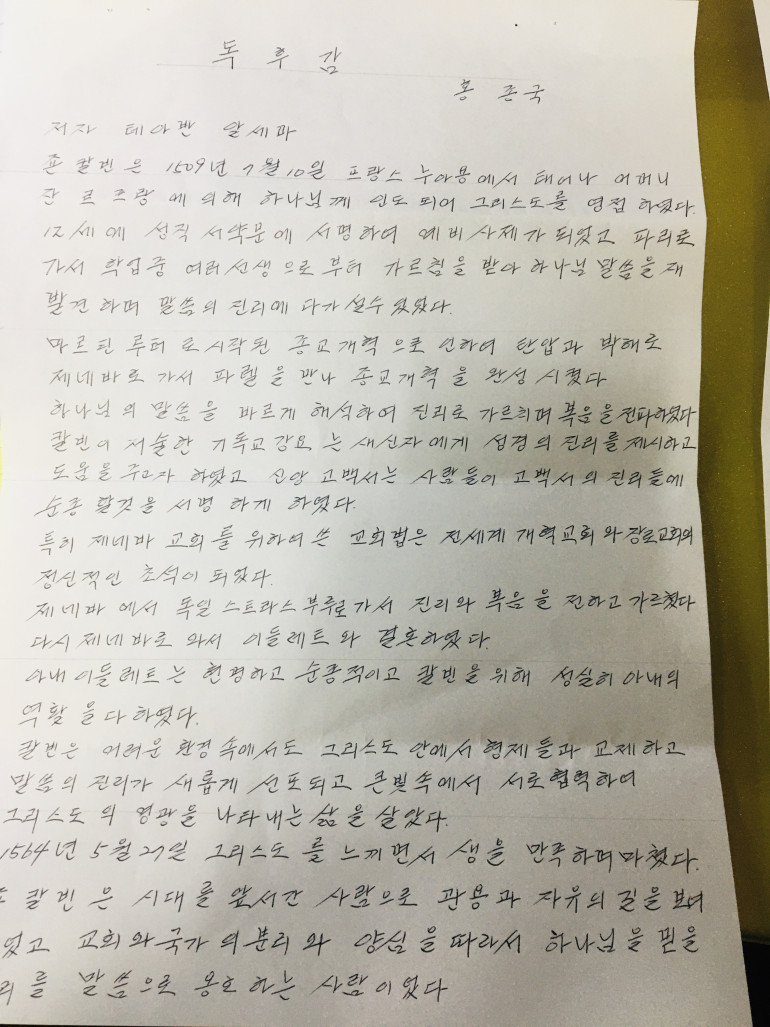 독 후 감
홍 종 국
저자 테아반 알세라
존 칼빈은 1509년 7월 10일 프랑스 누아용에서 태어나 어머니
잔 르프랑에 의해 하나님께 인도 되어 그리스도를 영접 하였다.
12세에 성직 서약문에 서명하여 예비사제가 되었고 파리로
가서 학업중 여러선생으로 부터 가르침을 받아 하나님 말씀을 재
발견 하며 말씀의 진리에 다가 설수 있었다.
마르틴 루터로 시작된 종교개혁으로 인하여 탄압과 박해로
제네바로 가서 파렐을 만나 종교개혁을 완성 시켰다
하나님의 말씀을 바르게 해석하여 진리로 가르치며 복음을 전파하였다
칼빈이 저술한 기독교강요는 새신자에게 성경의 진리를 제시하고
도움을 주고자 하였고 신앙 고백서는 사람들이 고백서의 진리들에
순종 할것을 서명 하게 하였다.
특히 제네바 교회를 위하여 쓴 교회법은 전세계 개혁교회와 장로교회의
정신적인 초석이 되었다.
제네바에서 독일 스트라스부루로가서 진리와 복음을 전하고 가르쳤다
다시 제네바로 와서 이들레트와 결혼하였다.
아내 이들레트는 현명하고 순종적이고 칼빈을 위해 성실히 아내의
역활을 다 하였다.
칼빈은 어려운 환경속에서도 그리스도 안에서 형제들과 교제하고
말씀의 진리가 새롭게 선포되고 큰빛속에서 서로협력하여
그리스도의 영광을 나타내는 삶을 살았다.
1564년 5월 27일 그리스도를 느끼면서 생을 만족하며마쳤다.
칼빈은 시대를 앞서간 사람으로 관용과 자유의 길을 보여
었고 교회와국가의분리와 양심을따라서 하나님을 믿을
리를 말씀으로 옹호하는 사람이었다